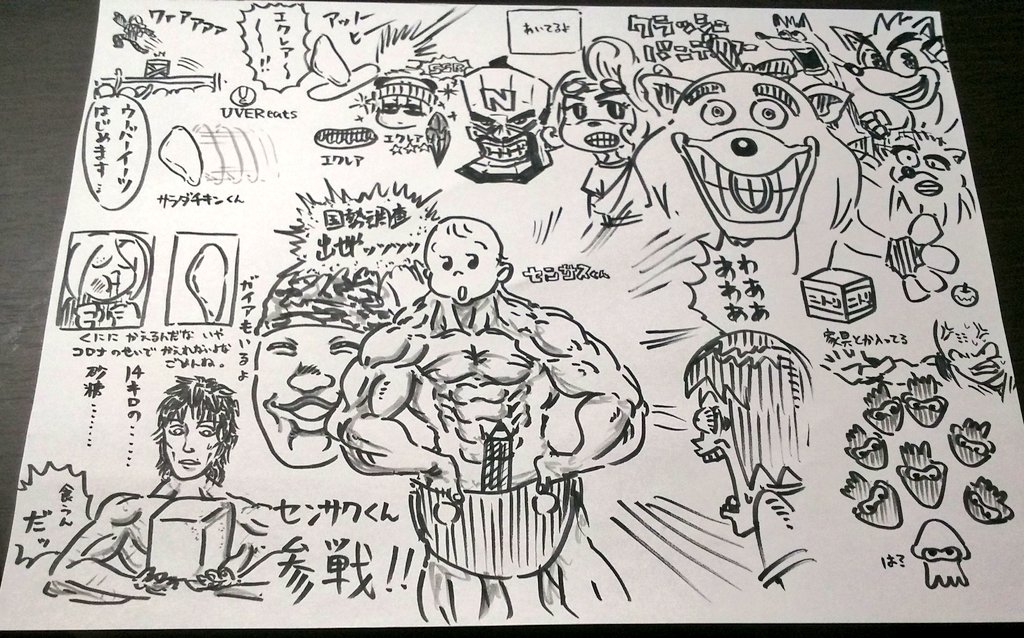 ワァァァァ
エクレア〜
〜!!
アットー
と
UVEReats
SSR
エクレア
☆☆☆☆
エクレア
N
あいてるよ
クラッシュ
バンディクー
ウーバーイーツ
はじめます…
サラダチキンくん
国勢調査
出せッッッッッ
センサスくん
ガイアもいるよ
くにに かえるんだな いや
コロナのせいで かえれないよな
ごめんね。
14キロの……
砂糖………
食うん
だッ
センサクくん
参戦!!
わあああ
あわわあ
ニトリ
ニトリ
家具とか入ってる
はこ